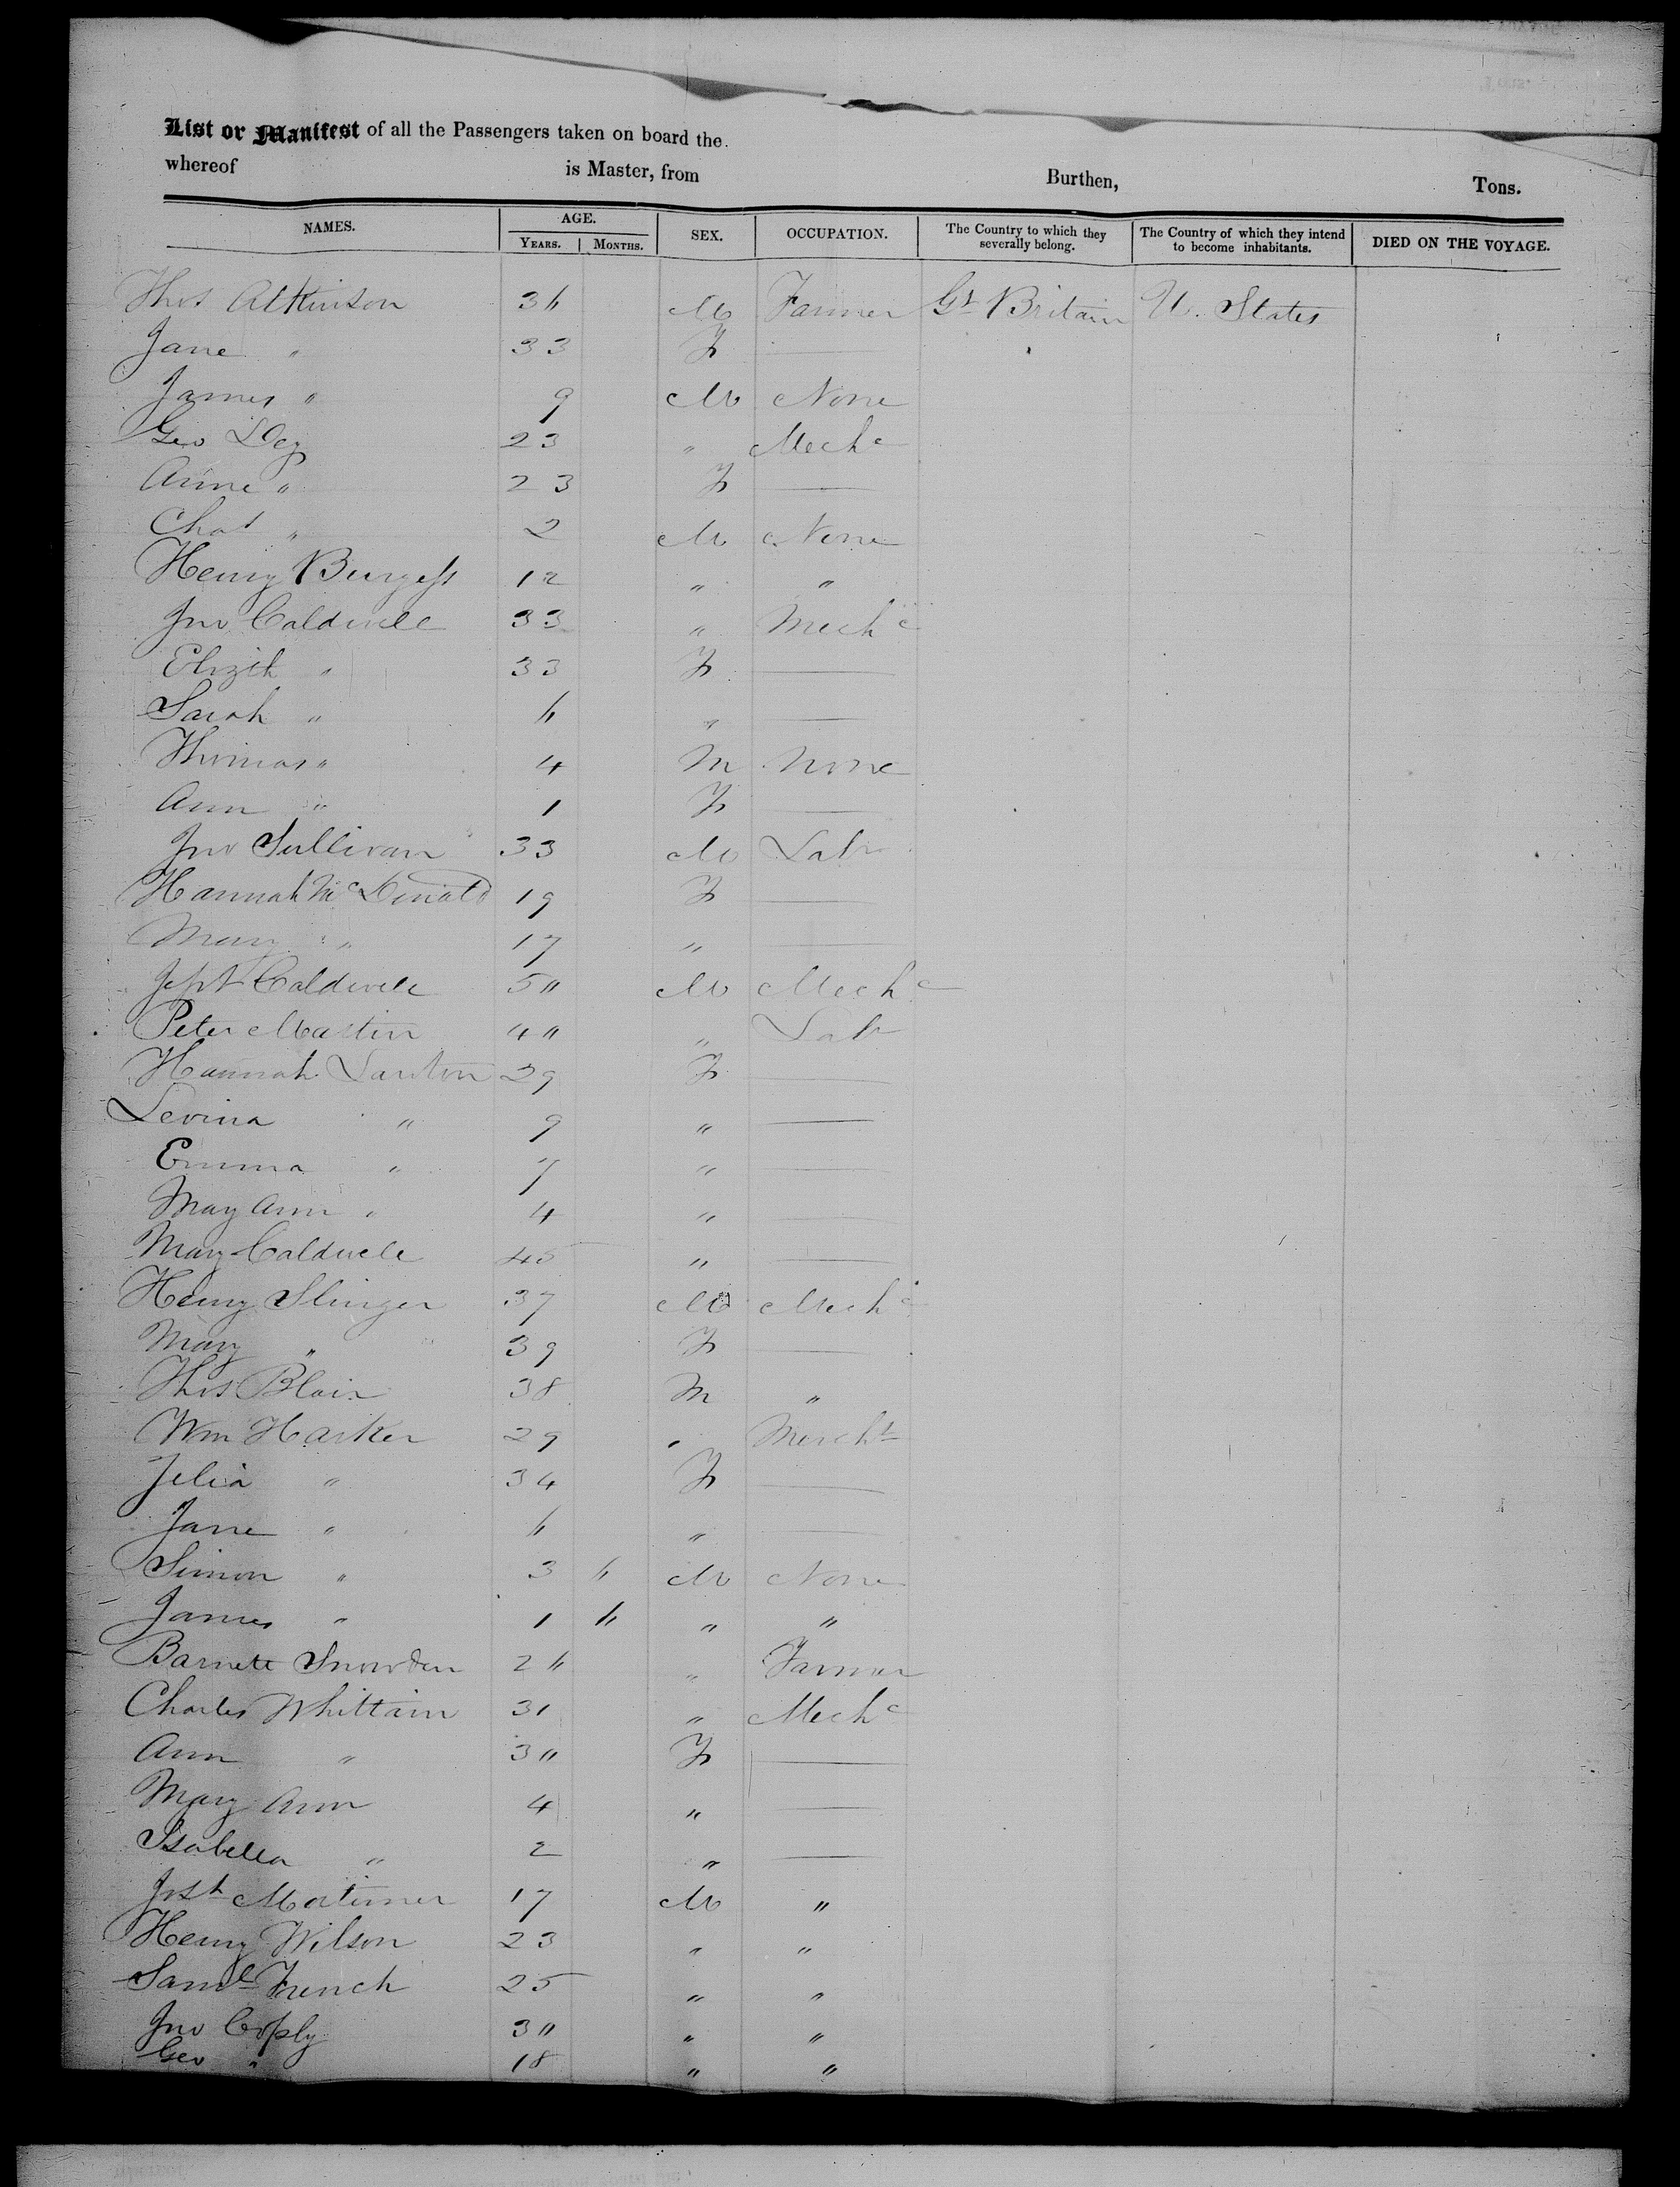 List or Manifest of all the Passengers taken on board the
whereof is Master, from Burthen, Tons.
NAMES. AGE. YEARS. MONTHS. SEX. OCCUPATION. The Country to which they severally belong. The Country of which they intend to become inhabitants. DIED ON THE VOYAGE.
Thos Atkinson 36 M Farmer Gt Britain U. States
Jane " 33 F —
James " 9 M None
Geo Dey 23 " Mechc
Anne " 23 F —
Chas " 2 M None
Henry Burgess 12 " "
Jno Caldwell 33 " Mechc
Elizth " 33 F —
Sarah " 6 " —
Thomas " 4 M None
Ann " 1 F —
Jno Sullivan 33 M Labr
Hannah McDonald 19 F —
Mary " 17 " —
Caldwell 50 M Mechc
Peter Martin 40 " Labr
Hannah 29 F —
Levina " 9 " —
Emma " 7 " —
May Ann " 4 " —
Mary Caldwell 45 " —
Henry Slinger 37 M Mechc
Mary " 39 F —
Thos Blair 38 M "
Wm Harker 29 " Mercht
Jelia " 34 F —
Jane " 6 " —
Simon " 3 6 M None
James " 1 6 " "
Barnett Snowden 26 " Farmer
Charles Whittam 31 " Mechc
Ann " 30 F —
Mary Ann 4 " —
Isabella " 2 " —
Josh Mortimer 17 M "
Henry Wilson 23 " "
Saml French 25 " "
Jno Coply 30 " "
Geo " 18 " "